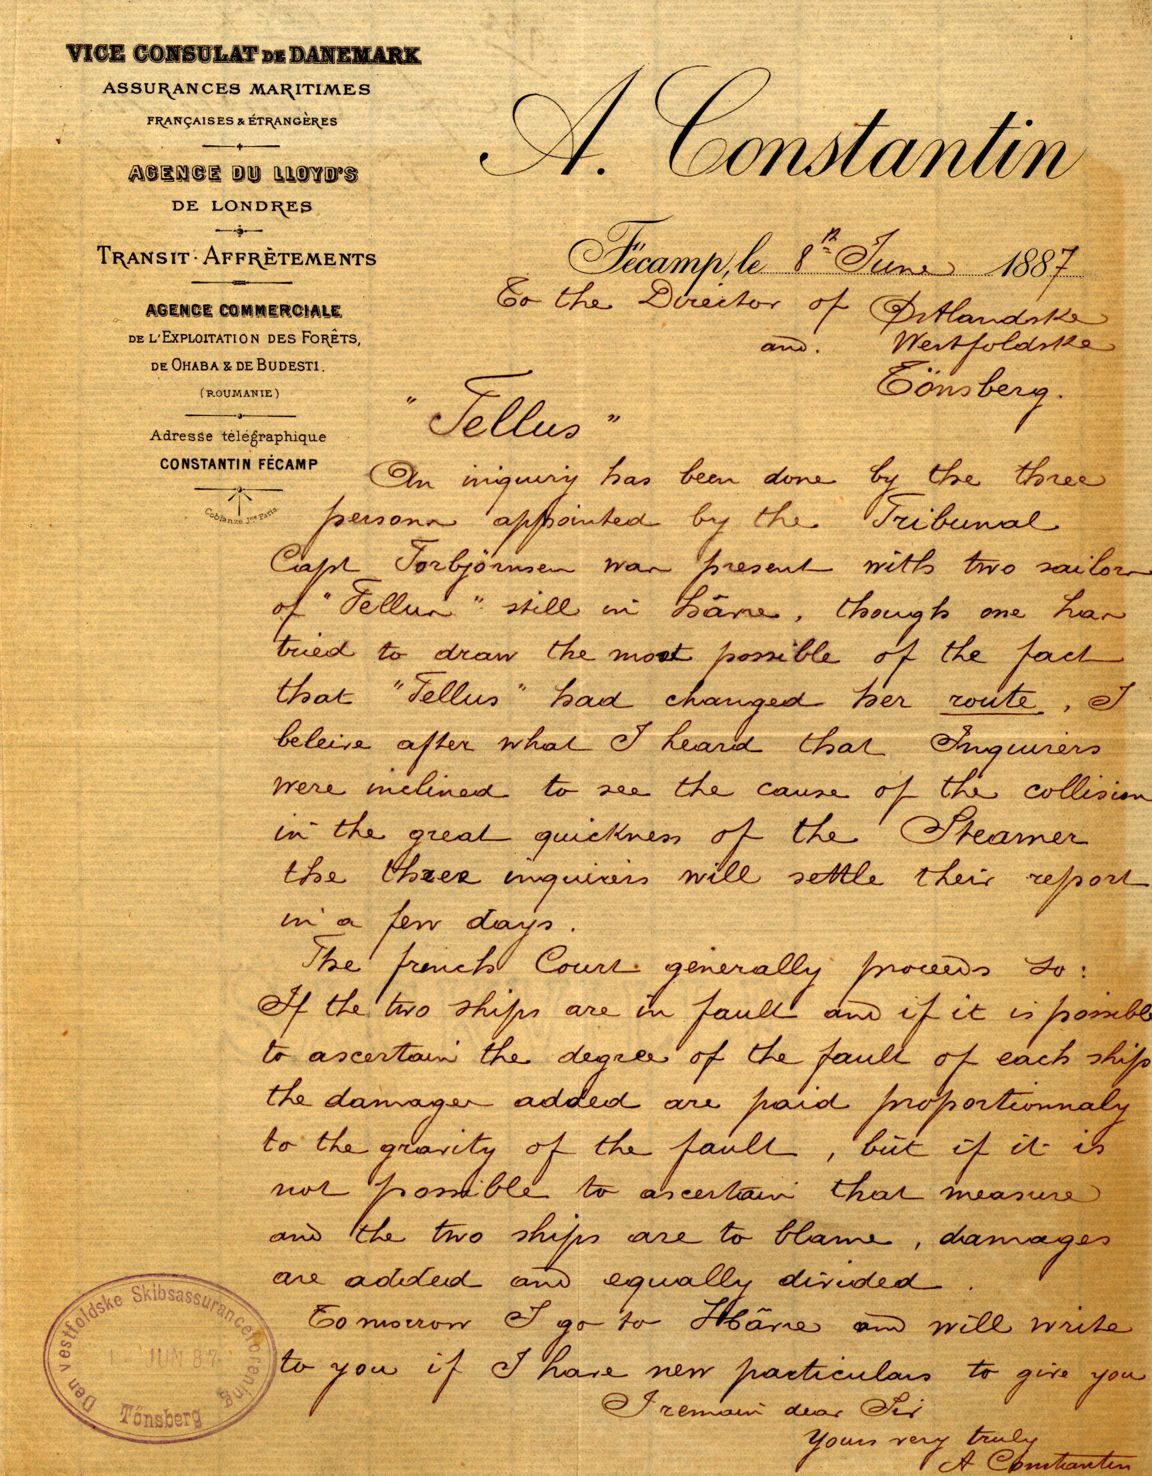 VICE CONSULAT DE DANEMARK
ASSURANCES MARITIMES
FRANÇAISES & ÉTRANGÈRES
AGENCE DU LLOYD'S
DE LONDRES
TRANSIT · AFFRÈTEMENTS
AGENCE COMMERCIALE
DE L'EXPLOITATION DES FORÊTS,
DE OHABA & DE BUDESTI.
(ROUMANIE)
Adresse télégraphique
CONSTANTIN FÉCAMP
Coblanze Jne Paris
A. Constantin
Fécamp, le 8th June 1887
To the Director of
and. Westfoldske
Tönsberg.
"Tellus"
An iniquiry has been done by the three
persons appointed by the Tribunal
Capt Torbjörnsen was present with two sailors
of "Tellus" still in Hâvre, though one has
tried to draw the most possible of the fact
that "Tellus" had changed her route, I
beleive after what I heard that Inquirers
were inclined to see the cause of the collision
in the great quickness of the Steamer
the three inquirers will settle their report
in a few days.
The french Court generally proceeds so:
If the two ships are in fault and if it is possible
to ascertain the degree of the fault of each ship
the damages added are paid proportionnaly
to the gravity of the fault, but if it is
not possible to ascertain that measure
and the two ships are to blame, damages
are added and equally divided.
Tomorrow I go to Hâvre and will write
to you if I have new particulars to give you
I remain dear Sir
Yours very truly
A Constantin
Den Vestfoldske Skibsassuranceforening
JUN 87
Tönsberg